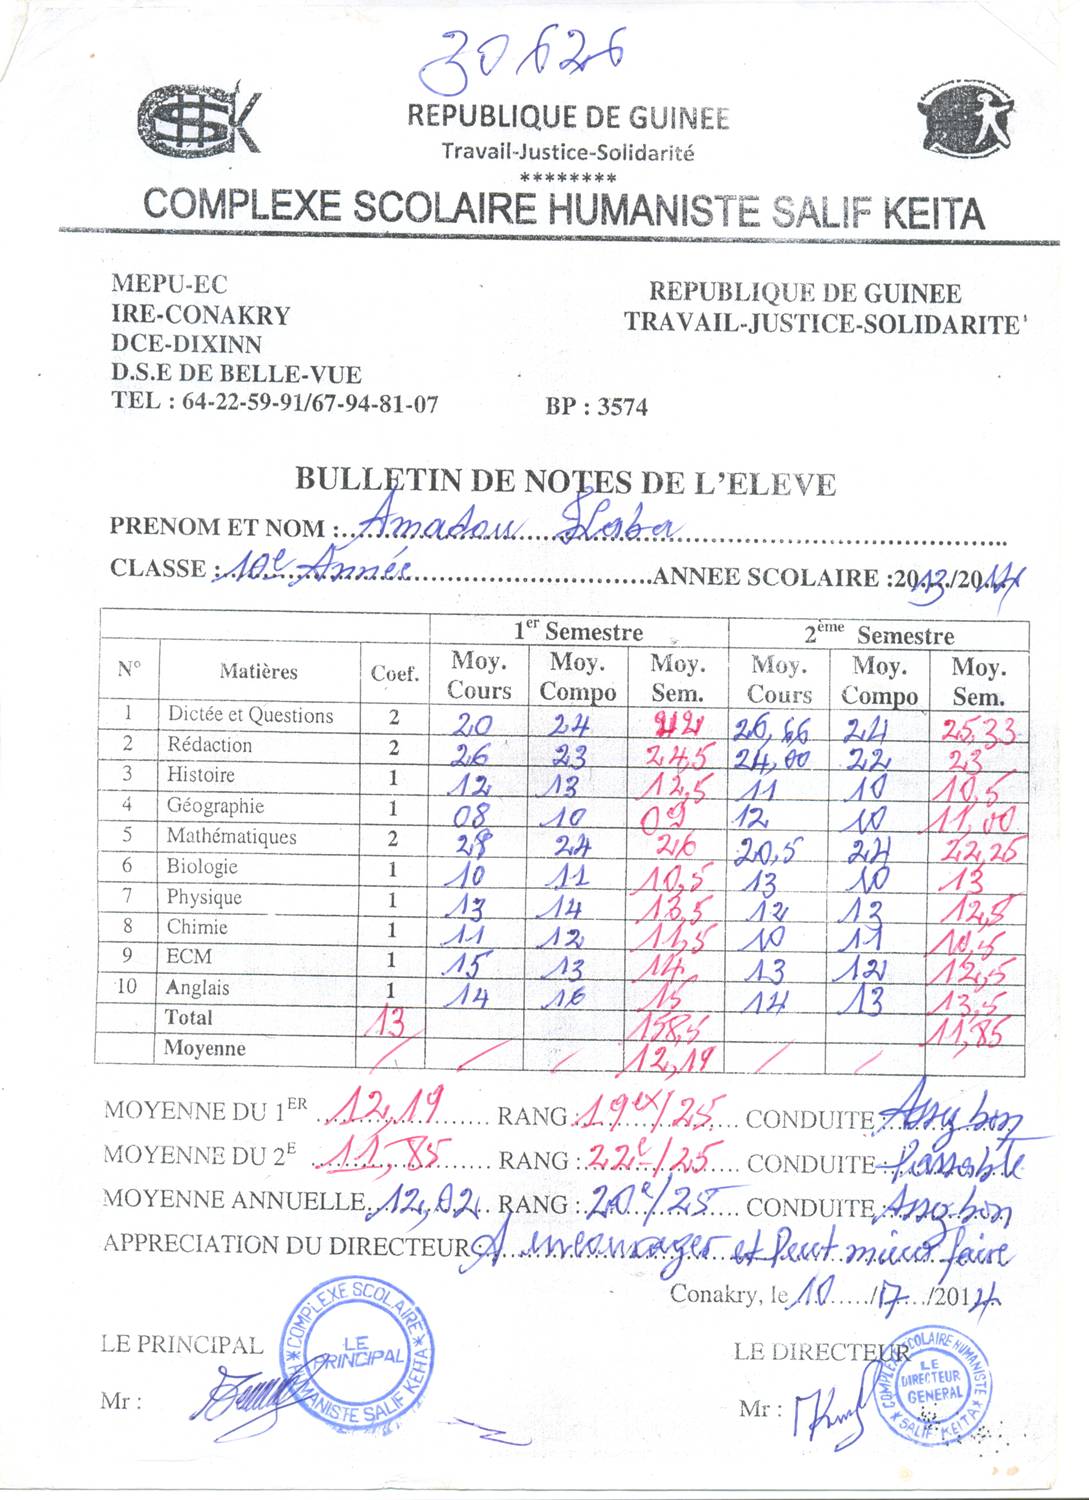 30626
HSK
REPUBLIQUE DE GUINEE
Travail-Justice-Solidarité
********
COMPLEXE SCOLAIRE HUMANISTE SALIF KEITA
MEPU-EC
IRE-CONAKRY
DCE-DIXINN
D.S.E DE BELLE-VUE
TEL : 64-22-59-91/67-94-81-07 BP : 3574
REPUBLIQUE DE GUINEE
TRAVAIL-JUSTICE-SOLIDARITE'
BULLETIN DE NOTES DE L'ELEVE
PRENOM ET NOM : Amadou
CLASSE : 10e Année ANNEE SCOLAIRE :2013/2014
1er Semestre 2ème Semestre
N° Matières Coef. Moy. Cours Moy. Compo Moy. Sem. Moy. Cours Moy. Compo Moy. Sem.
1 Dictée et Questions 2 20 24 22 26,66 24 25,33
2 Rédaction 2 26 23 24,5 24,00 22 23
3 Histoire 1 12 13 12,5 11 10 10,5
4 Géographie 1 08 10 09 12 10 11,00
5 Mathématiques 2 28 24 26 20,5 24 22,25
6 Biologie 1 10 11 10,5 13 10 13
7 Physique 1 13 14 13,5 12 13 12,5
8 Chimie 1 11 12 11,5 10 11 10,5
9 ECM 1 15 13 14 13 12 12,5
10 Anglais 1 14 16 15 14 13 13,5
Total 13 158,5 11,85
Moyenne / / / 12,19 / /
MOYENNE DU 1ER 12,19 RANG : 19ex/25 CONDUITE Assez bon
MOYENNE DU 2E 11,85 RANG : 22e/25 CONDUITE : Passable
MOYENNE ANNUELLE 12,02 RANG : 20e/25 CONDUITE Assez bon
APPRECIATION DU DIRECTEUR A encourager et Peut mieux faire
Conakry, le 10/7/2014
LE PRINCIPAL
Mr :
COMPLEXE SCOLAIRE HUMANISTE SALIF KEITA
LE PRINCIPAL
LE DIRECTEUR
Mr :
COMPLEXE SCOLAIRE HUMANISTE SALIF KEITA
LE DIRECTEUR GENERAL